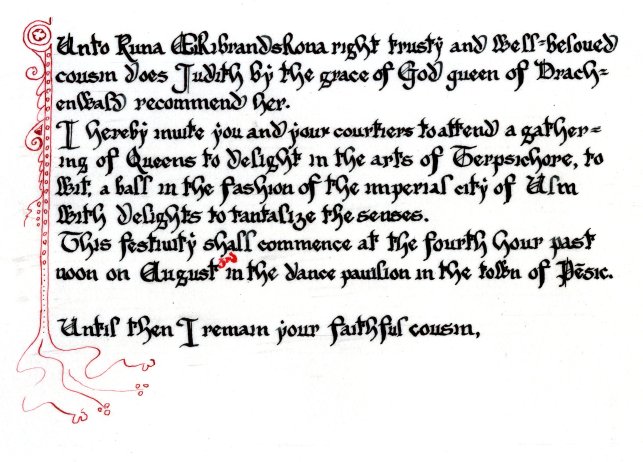 Unto Runa Ælkibrandskona right trusty and well-beloved
cousin does Judith by the grace of God queen of Drach-
enwald recommend her.
I hereby invite you and your courtiers to attend a gather-
ing of Queens to delight in the arts of Terpsichore, to
wit, a ball in the fashion of the imperial city of Ulm
with delights to tantalize the senses.
This festivity shall commence at the fourth hour past
noon on August in the dance pavilion in the town of Pēsic.
Until then I remain your faithful cousin,